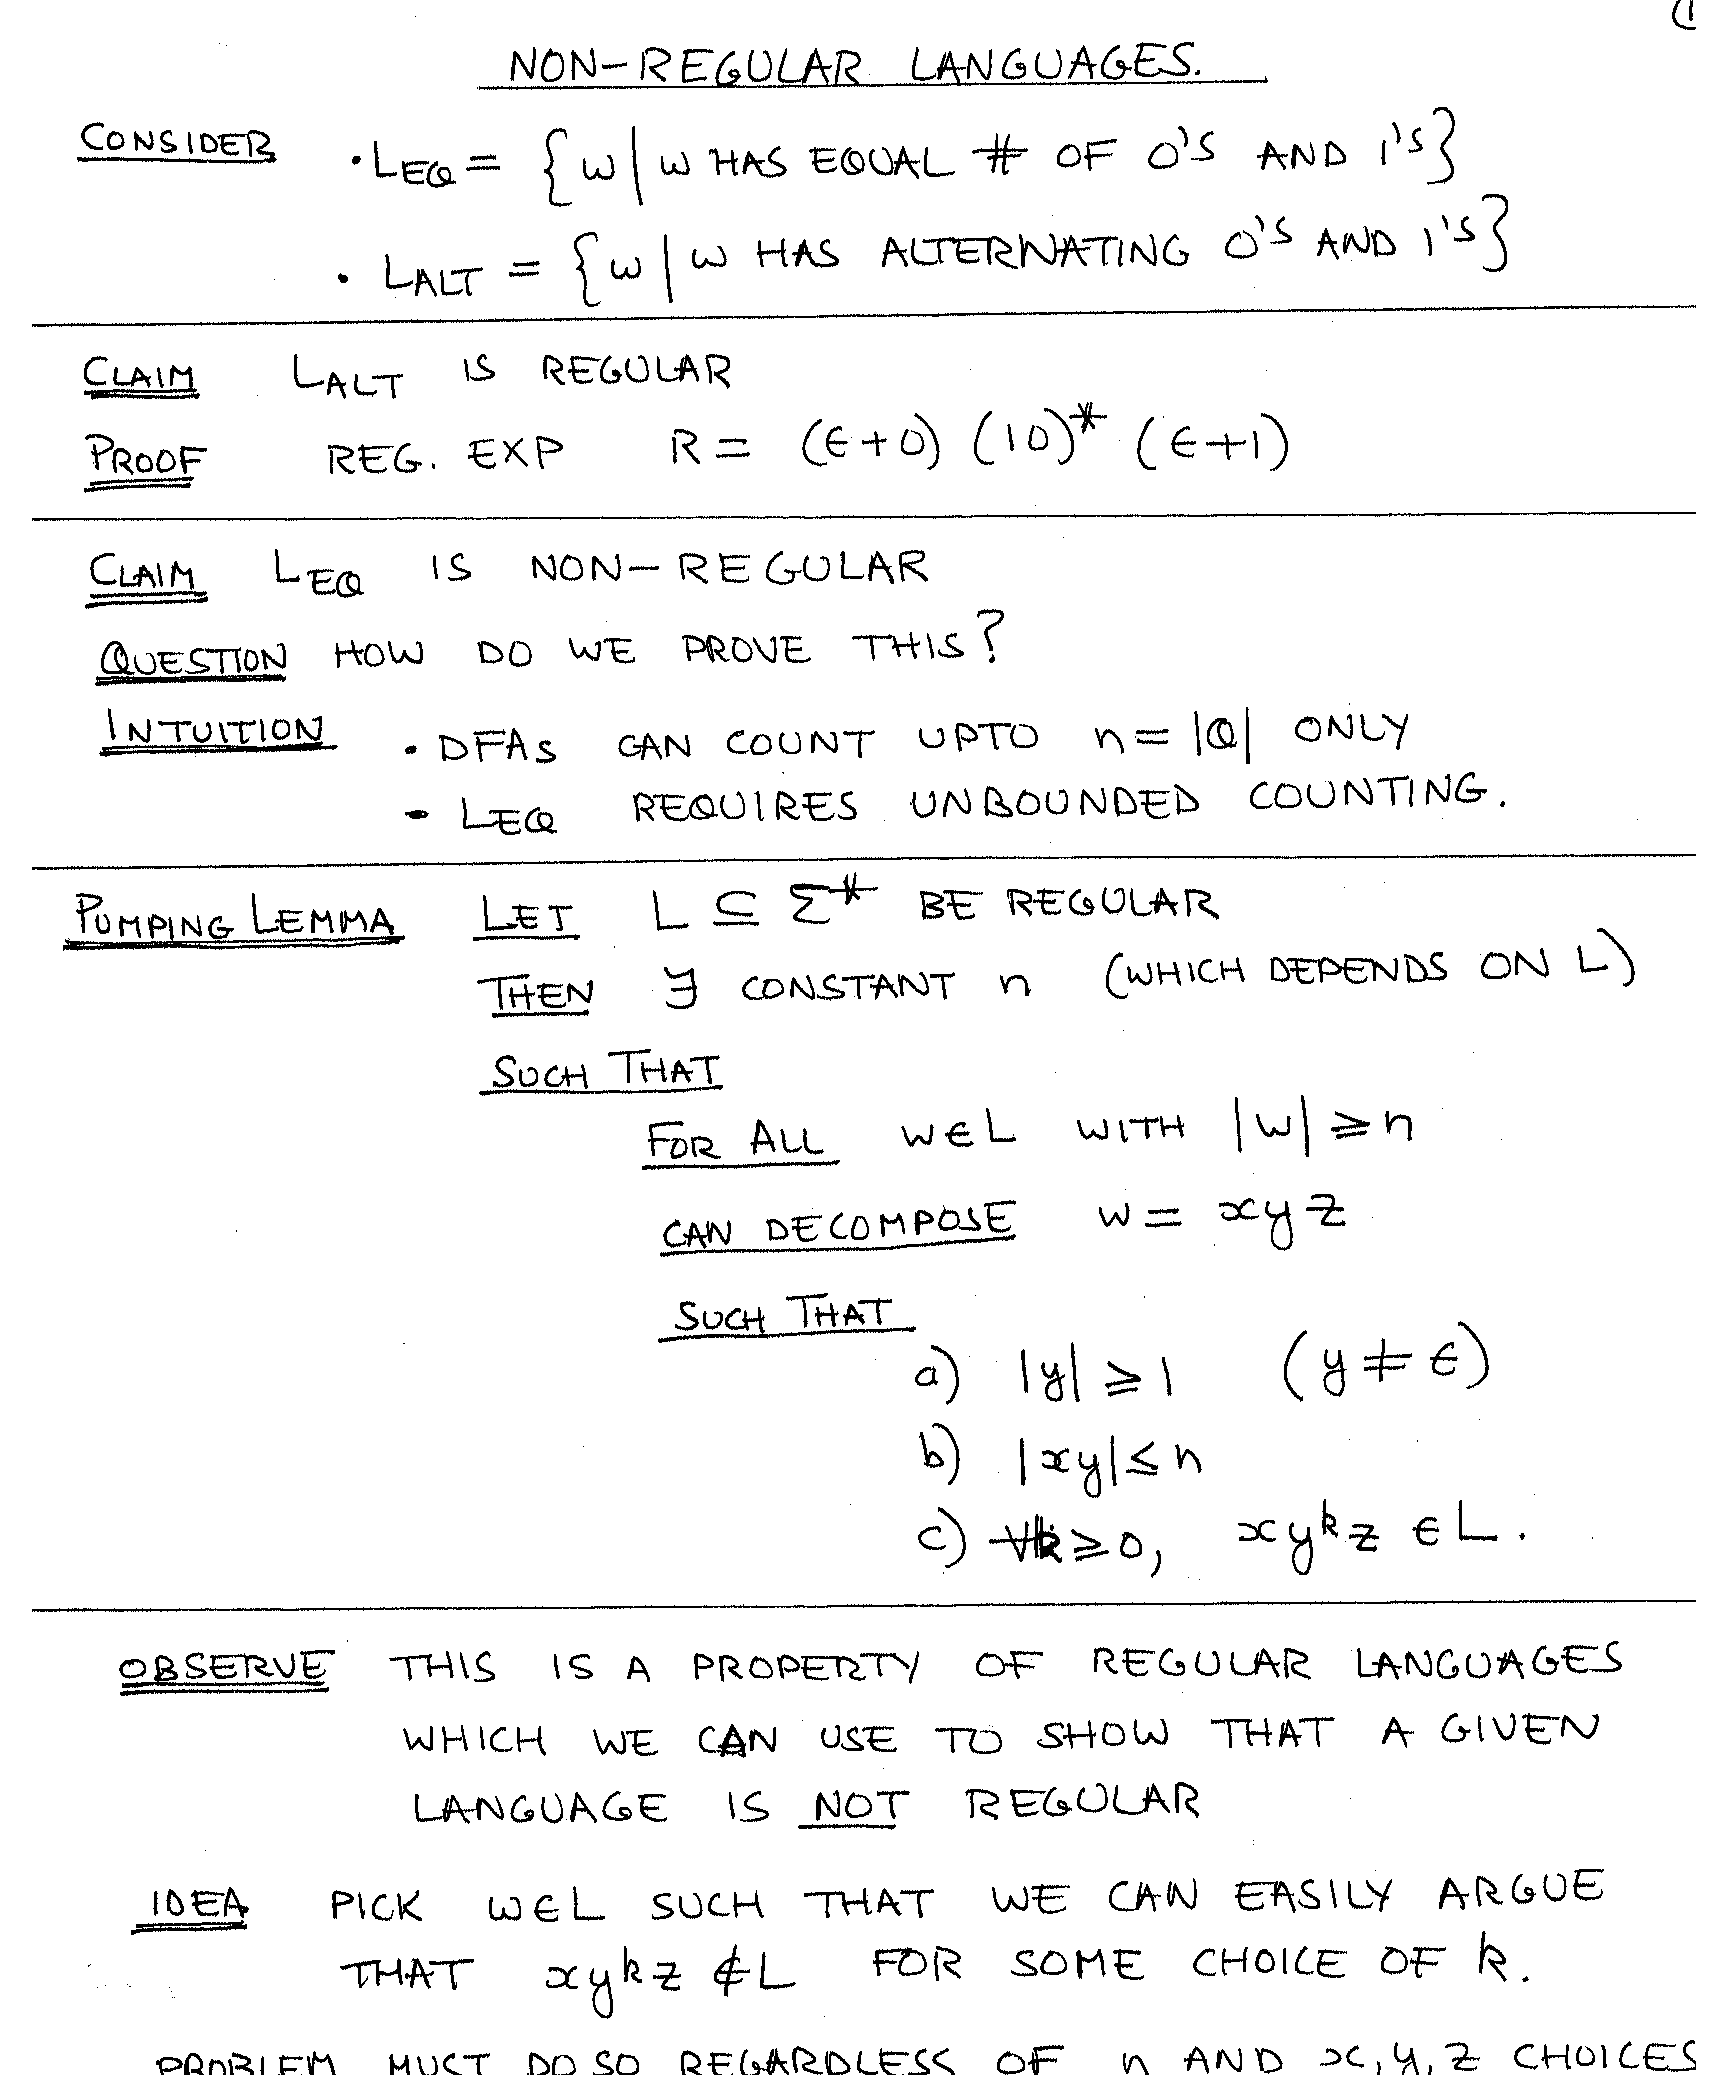 (1
NON-REGULAR LANGUAGES.
CONSIDER • LEQ = {w | w HAS EQUAL # OF 0'S AND 1'S}
• LALT = {w | w HAS ALTERNATING 0'S AND 1'S}
CLAIM LALT IS REGULAR
PROOF REG. EXP R = (ϵ+0) (10)* (ϵ+1)
CLAIM LEQ IS NON-REGULAR
QUESTION HOW DO WE PROVE THIS?
INTUITION • DFAs CAN COUNT UPTO n = |Q| ONLY
• LEQ REQUIRES UNBOUNDED COUNTING.
PUMPING LEMMA LET L ⊆ Σ* BE REGULAR
THEN ∃ CONSTANT n (WHICH DEPENDS ON L)
SUCH THAT
FOR ALL w∈L WITH |w| ≥ n
CAN DECOMPOSE w = xyz
SUCH THAT
a) |y| ≥ 1 (y ≠ ϵ)
b) |xy| ≤ n
c) ∀k ≥ 0, xyᵏz ∈ L.
OBSERVE THIS IS A PROPERTY OF REGULAR LANGUAGES
WHICH WE CAN USE TO SHOW THAT A GIVEN
LANGUAGE IS NOT REGULAR
IDEA PICK w∈L SUCH THAT WE CAN EASILY ARGUE
THAT xyᵏz ∉ L FOR SOME CHOICE OF k.
PROBLEM MUST DO SO REGARDLESS OF n AND x, y, z CHOICES